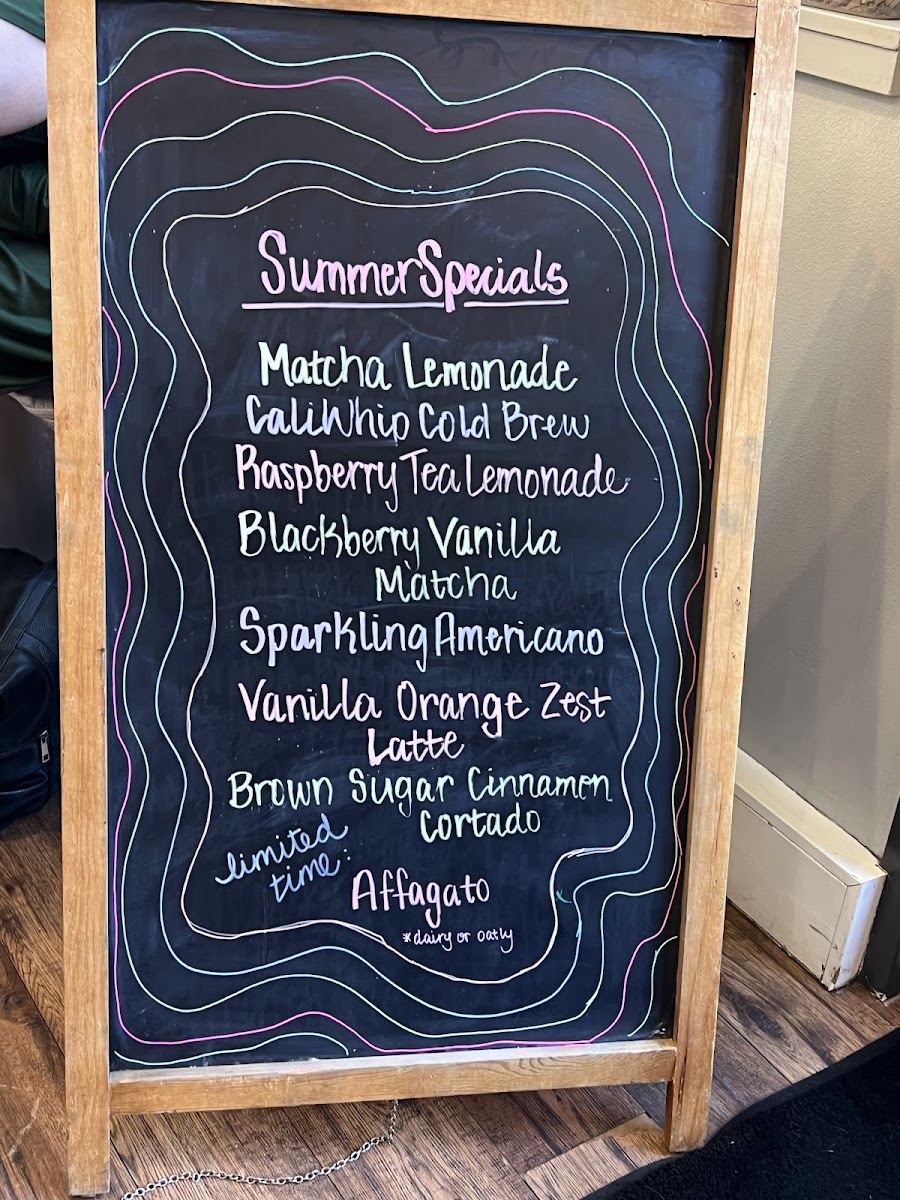 Summer Specials
Matcha Lemonade
CaliWhip Cold Brew
Raspberry Tea Lemonade
Blackberry Vanilla
Matcha
Sparkling Americano
Vanilla Orange Zest
Latte
Brown Sugar Cinnamon
Cortado
limited
time:
Affagato
*dairy or oatly